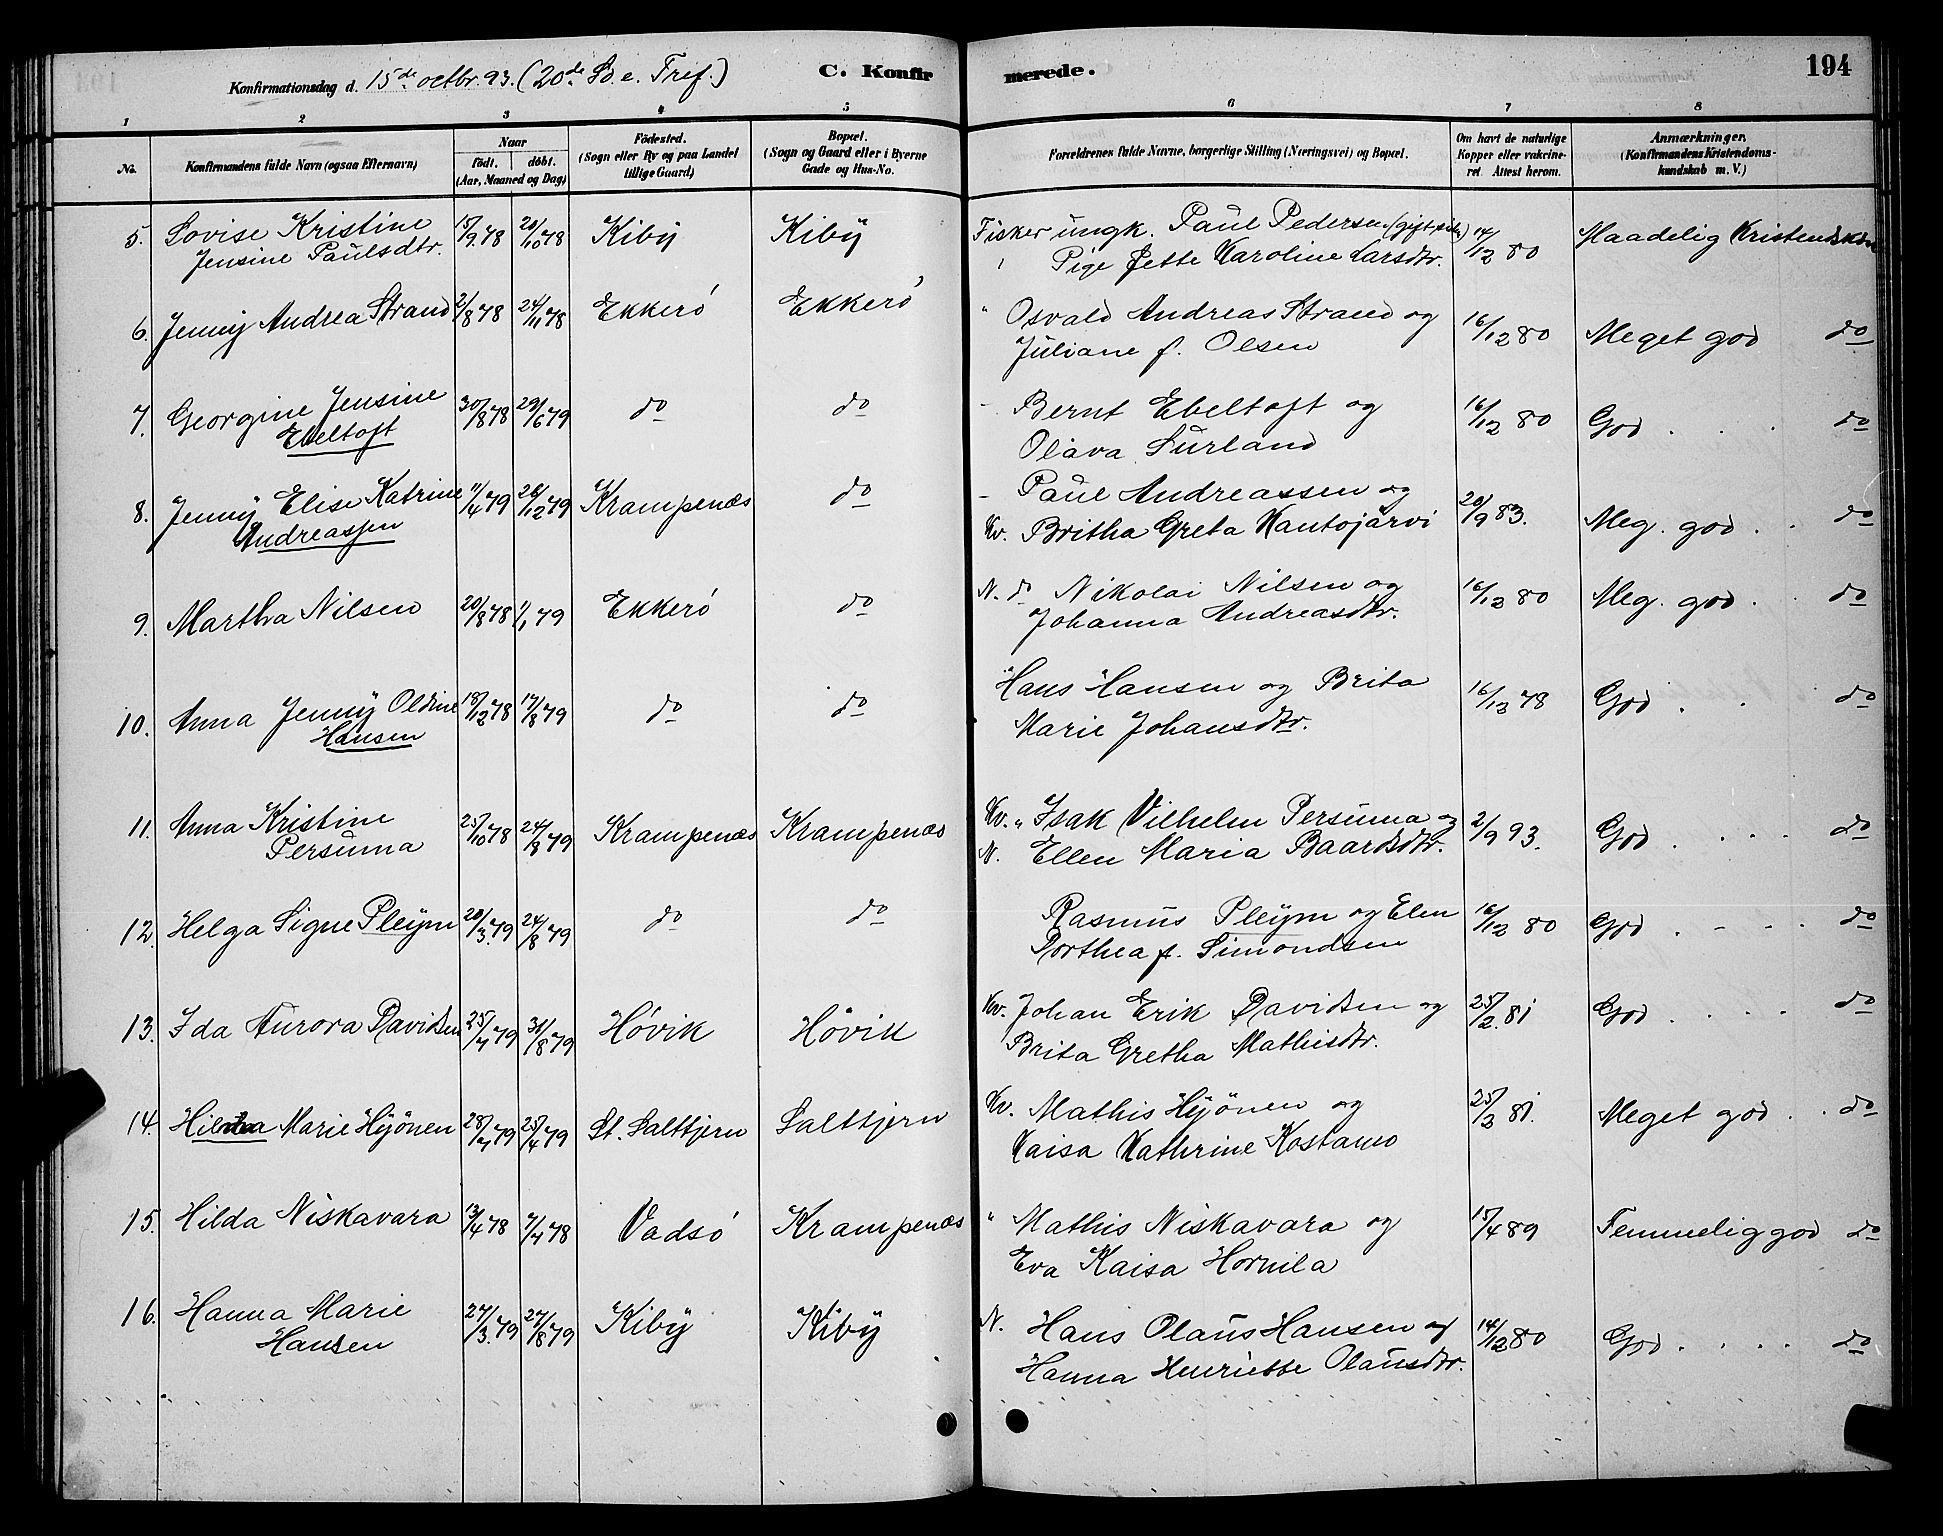 Konfirmationsdag d. 15de octbr. 93. (20de S. e. Tref.) C. Konfirmerede. 194
1 2 3 4 5 6 7 8
No. Konfirmandens fulde Navn (ogsaa Efternavn) Naar födt. döbt. (Aar, Maaned og Dag) Födested. (Sogn eller By og paa Landet tillige Gaard) Bopæl. (Sogn og Gaard eller i Byerne Gade og Hus-No. Forældrenes fulde Navne, borgerlige Stilling (Næringsvei) og Bopæl. Om havt de naturlige Kopper eller vakcineret. Attest herom. Anmærkninger. (Konfirmandens Kristendomskundskab m. V.)
5. Lovise Kristine 5/9 78 20/10 78 Kiby Kiby Fisker ungk. Paul Pedersen 14/12 80 Maadelig Kristendsk
Jensine Paulsdtr. Pige Jette Karoline Larsdtr.
6. Jenny Andrea Strand 2/8 78 24/11 78 Ekkerö Ekkerö " Osvald Andreas Strand og 16/12 80 Meget god do
Juliane f. Olsen
7. Georgine Jensine 30/8 78 29/6 79 do do - Bernt Ebeltoft og 16/12 80 God . . . do
Ebeltoft Olava Surland
8. Jenny Elise Katrine 11/4 79 26/12 79 Krampenæs do - Paul Andreassen og 20/9 83. Meg. god . . do
Andreassen Kv. Britha Greta Kantojärvi
9. Martha Nilsen 20/8 78 1/1 79 Ekkerö do N. do Nikolai Nilsen og 16/12 80 Meg. god . . do
Johanna Andreasdtr.
10. Anna Jenny Oldine 18/12 78 17/8 79 do do Hans Hansen og Brita 16/12 78 God . . do
Hansen Marie Johansdtr.
11. Anna Kristine 25/10 78 24/8 79 Krampenæs Krampenæs Kv. " Isak Vilhelm Persuma og 2/9 93. God . . . . do
Persuma N. Ellen Maria Baardsdtr.
12. Helga Signe Pleym 20/3. 79 24/8 79 do do Rasmus Pleym og Elen 16/12 80 God . . . . do
Dorthea f. Simondsen
13. Ida Aurora Davidsen 25/7 79 31/8 79 Hövik Hövik Kv. Johan Erik Davidsen og 25/2. 81 God . . . . do
Brita Gretha Mathisdtr.
14. Marie Hyönen 28/7 79 25/4 79 St. Saltbjern Saltbjern Kv. Mathis Hyönen og 25/2 81. Meget god . . do
Kaisa Kathrine Kostamo
15. Hilda Niskavara 13/4 78 7/7 78 Vadsö Krampenæs " Mathis Niskavara og 15/4 89 Temmelig god do
Eva Kaisa Hornila
16. Hanna Marie 27/3. 79 27/8 79 Kiby Kiby N. Hans Olaus Hansen og 14/12 80 God . . . . do
Hansen Hanna Henriette Olausdtr.